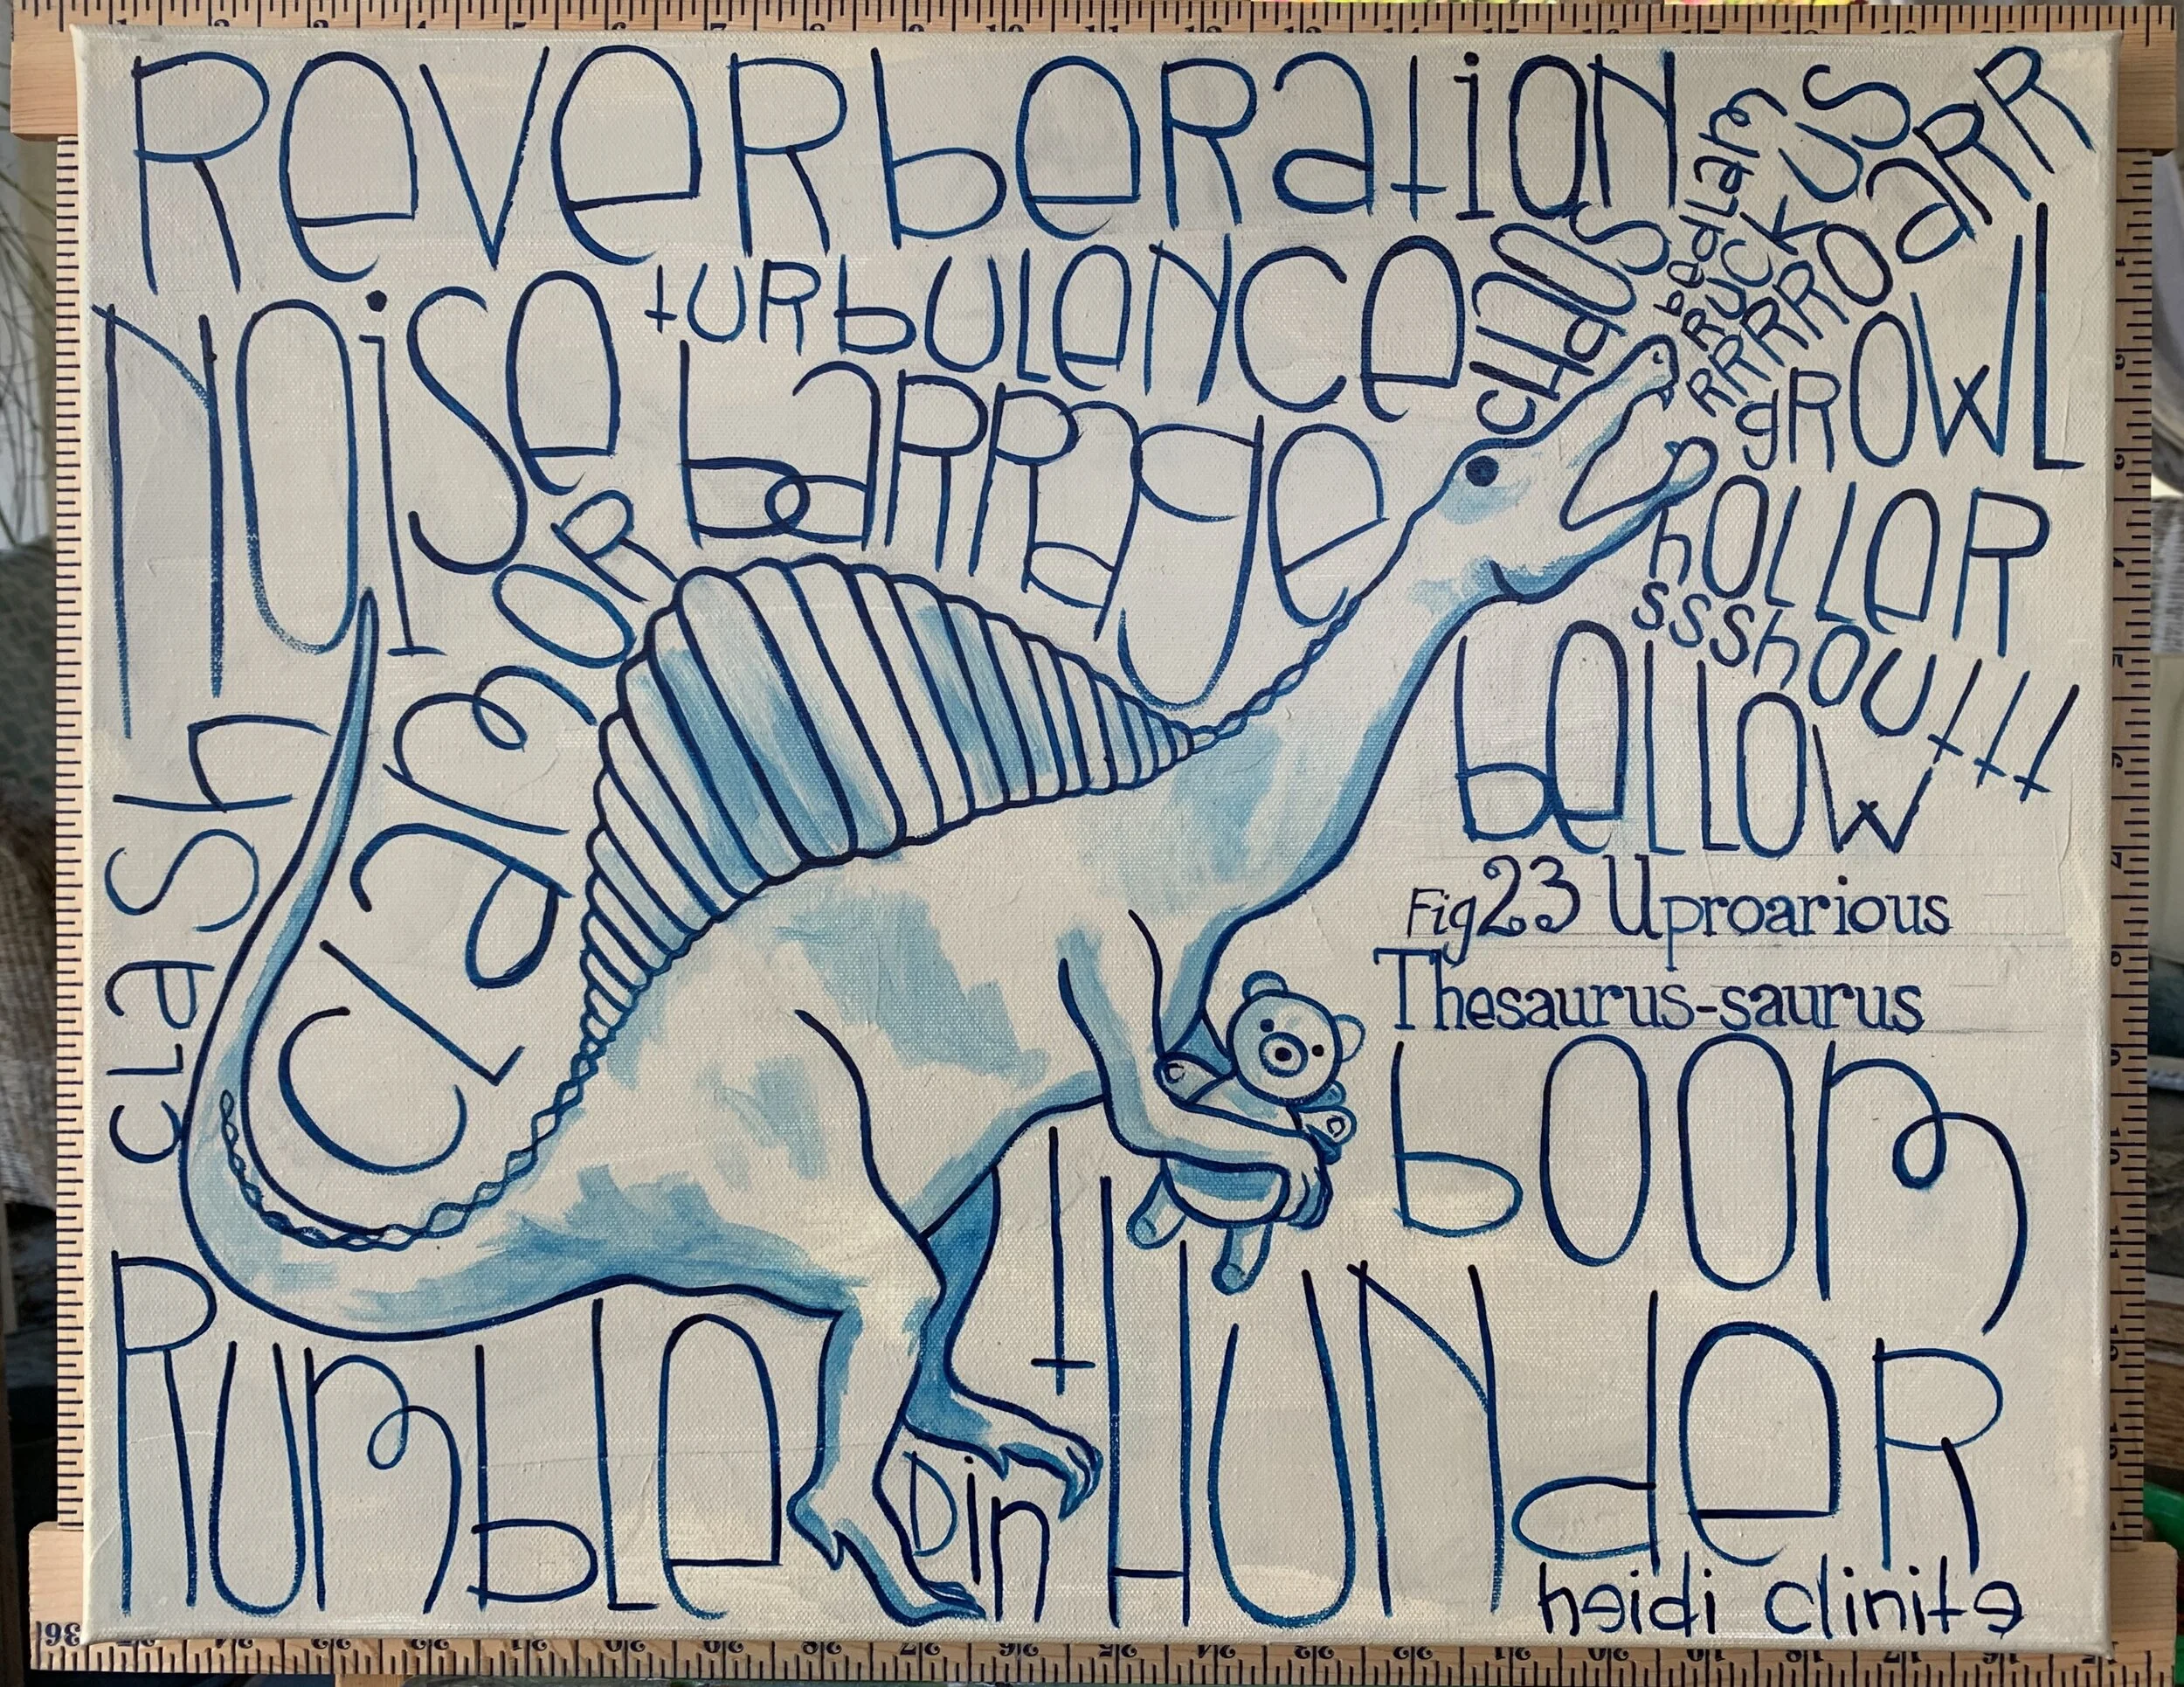 ReveRbeRatioN
NOise
tURbULeNCe
CHaOS
bedLam
RUCKUS
RRRROaRR
gROWL
baRRage
hOLLeR
ssshOUttt
CLamOR
beLLOW
CLaSh
Fig 23 Uproarious
Thesaurus-saurus
bOOm
RUmbLe
Din
tHUNdeR
heidi clinite